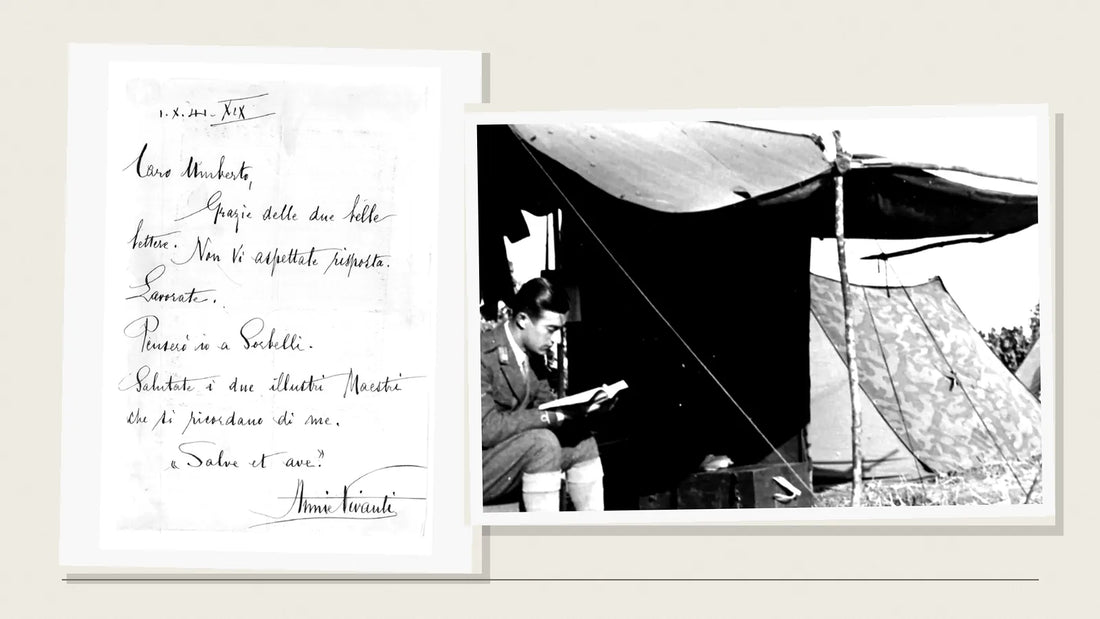 1.X.41-XIX
Caro Umberto,
Grazie delle due belle
lettere. Non Vi aspettate risposta.
Lavorate.
Penserò io a Sorbelli.
Salutate i due illustri Maestri
che si ricordano di me.
"Salve et ave"
Annie Vivanti